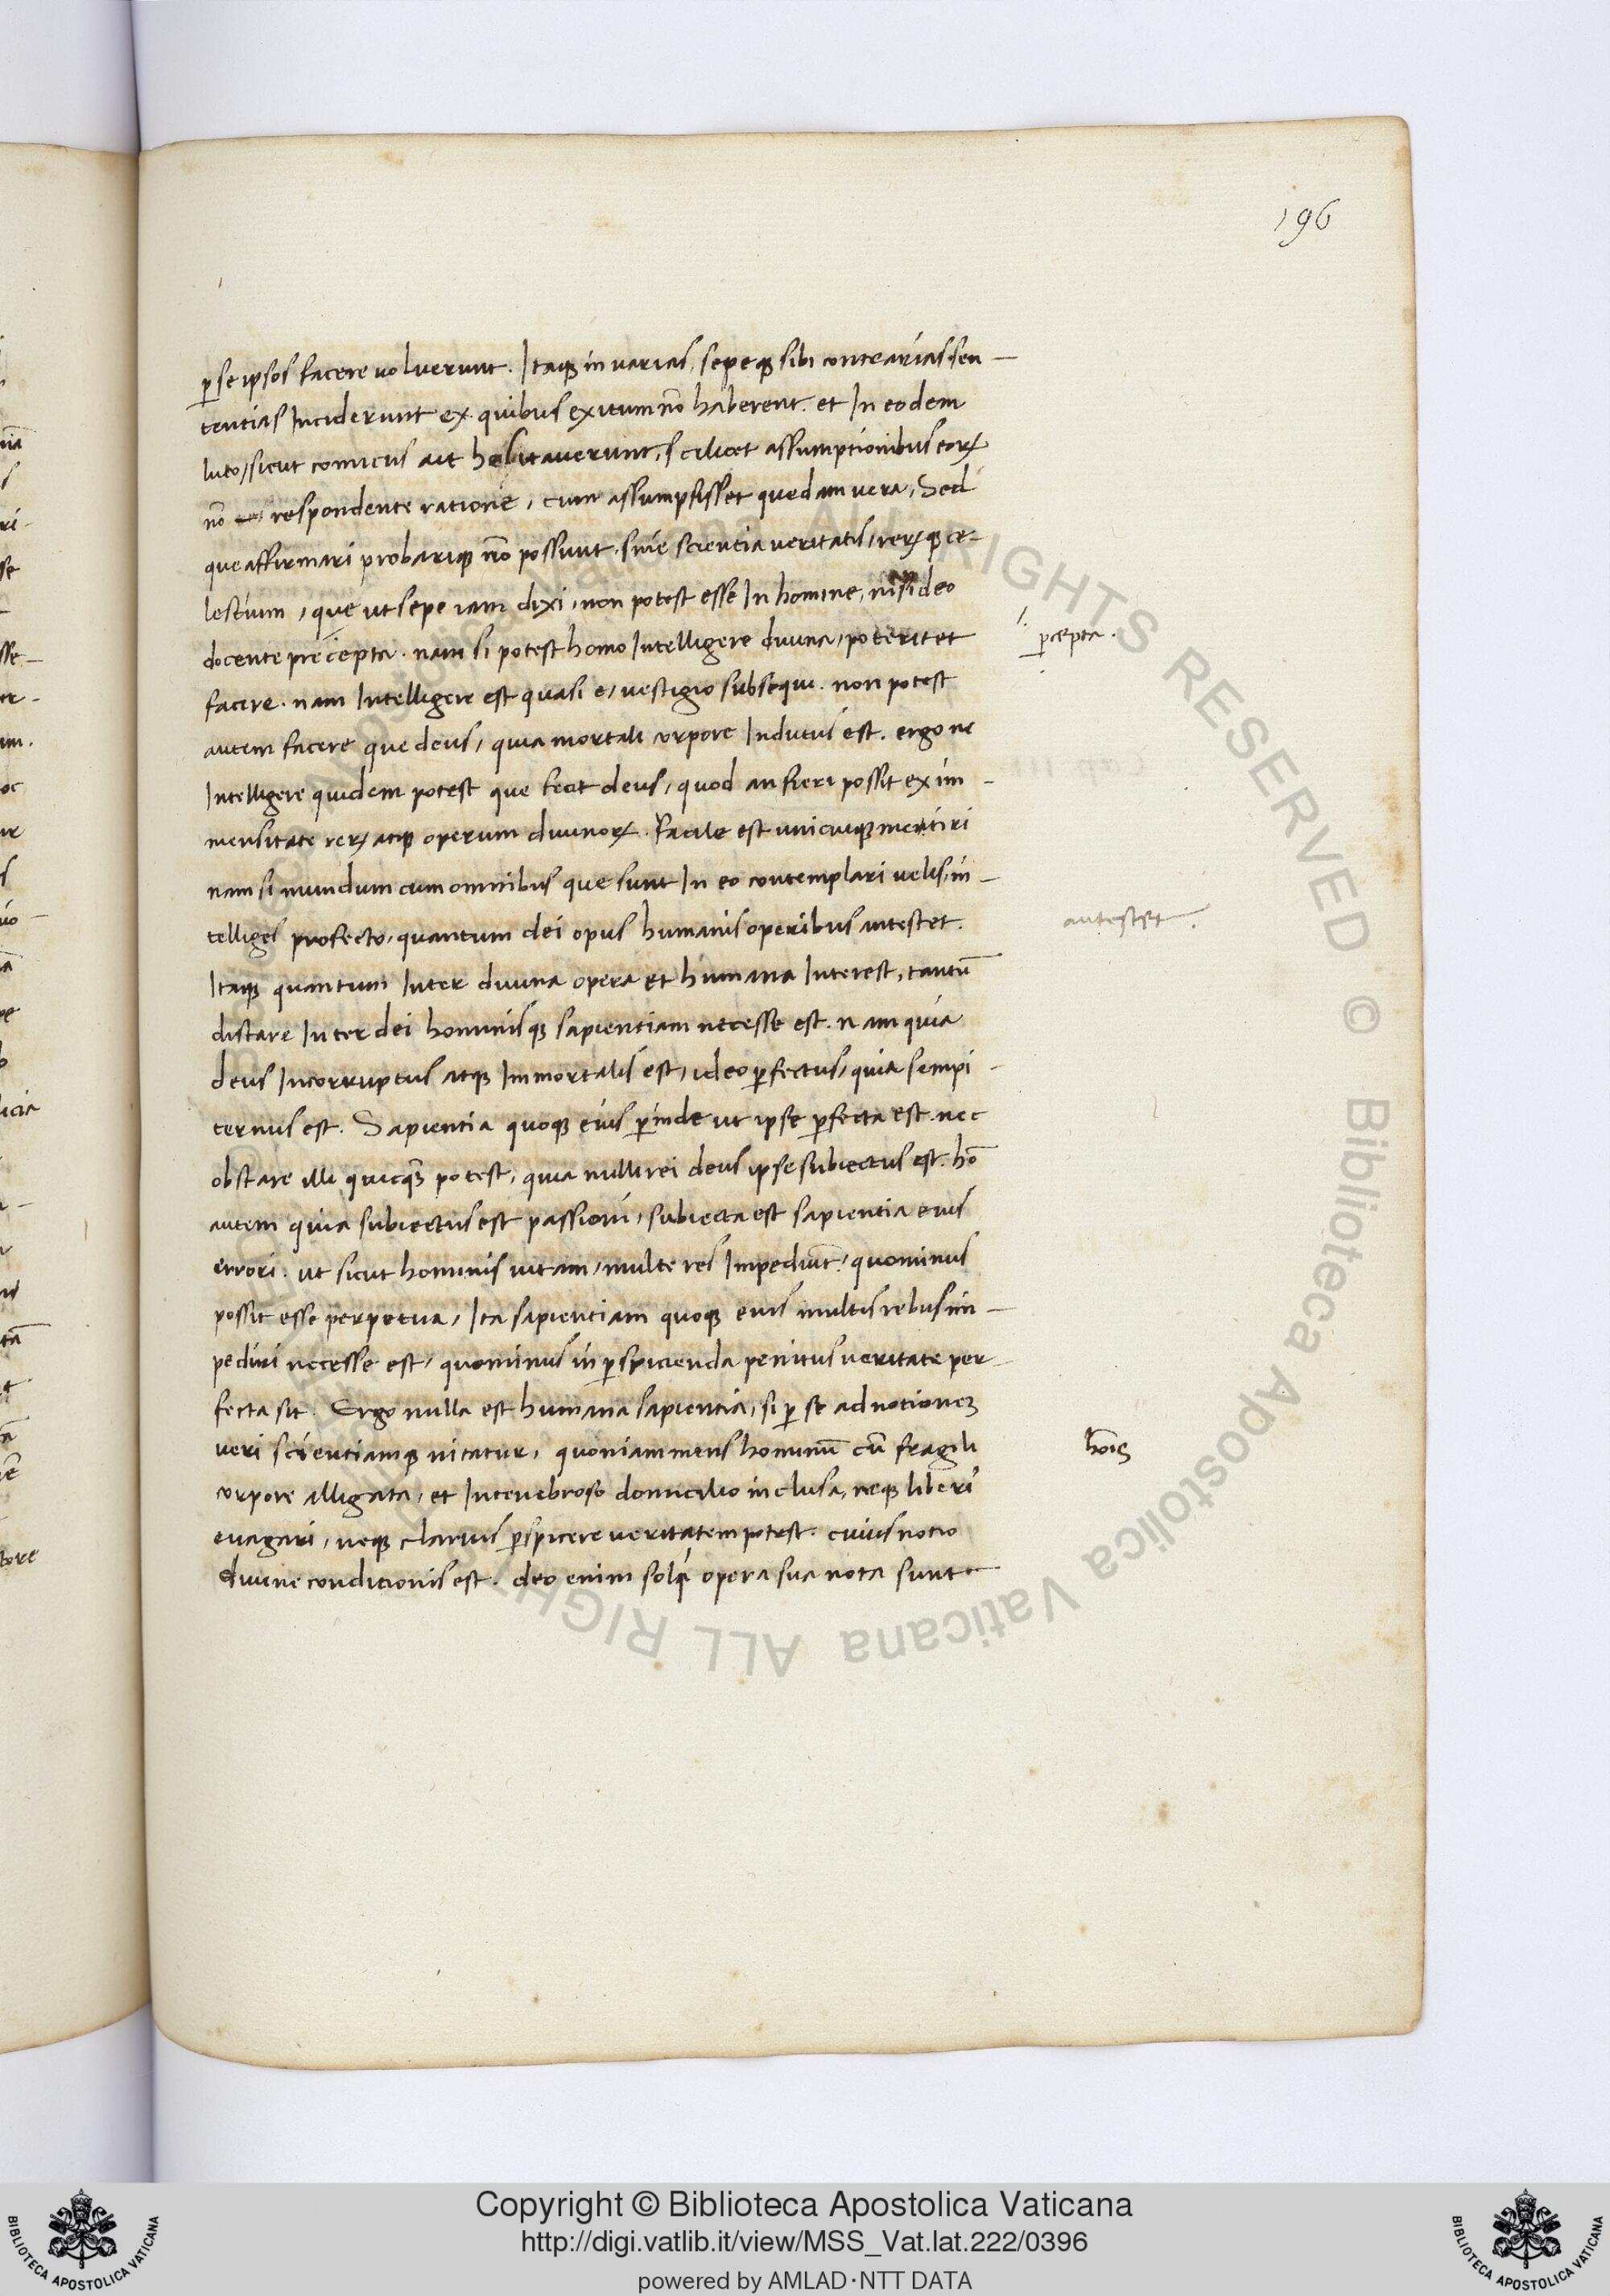 196
ꝑ se ipsos facere voluerunt. Itaqꝫ in varias, sepeqꝫ sibi contrarias sen-
tentias Inciderunt ex quibus exitum nō haberent. et In eodem
luto, sicut comicus ait hesitaverunt, scilicet assumptionibus eoꝝ
nō respondente ratione, cum assumpsisset quedam vera, Sed
que affirmari probariqꝫ nō possunt, sine scientia veritatis, reꝝqꝫ ce-
lestium, que ut sepe iam dixi, non potest esse In homine, nisi deo
docente precepta. nam si potest homo Intelligere divina, poterit et
ꝑcepta.
facere. nam Intelligere est quasi e, vestigio subsequi. non potest
autem facere que deus, quia mortali corpore Indutus est. ergo ne
Intelligere quidem potest que fecit deus, quod an fieri possit ex im-
mensitate reꝝ atqꝫ operum divinoꝝ. facile est unicuiqꝫ mentiri
nam si mundum cum omnibus que sunt In eo contemplari velis, in-
telliges profecto, quantum dei opus humanis operibus antestet.
antestet.
Itaqꝫ quantum Inter divina opera et humana Interest, tantū
distare Inter dei hominisqꝫ sapientiam necesse est. nam quia
deus Incorruptus atqꝫ Immortalis est, ideo ꝑfectus, quia sempi-
ternus est. Sapientia quoqꝫ eius ꝑinde ut ipse ꝑfecta est. nec
obstare illi quicqꝫ potest, quia nulli rei deus ipse subiectus est. hō
autem quia subiectus est passioni, subiecta est sapientia eius
errori. ut sicut hominis vitam, multe res Impediūt, quominus
possit esse perpetua, Ita sapientiam quoqꝫ eius multis rebus im-
pediri necesse est, quominus in ꝑspicienda penitus veritate per-
fecta sit. Ergo nulla est humana sapientia, si ꝑ se ad notionēꝫ
veri scientiamqꝫ nitatur, quoniam mens hominū cū fragili
hōis
corpore alligata, et In tenebroso domicilio inclusa, neqꝫ liberi
evagari, neqꝫ clarius ꝑspicere veritatem potest. cuius notio
divine conditionis est. deo enim soli opera sua nota sunt
Copyright © Biblioteca Apostolica Vaticana
http://digi.vatlib.it/view/MSS_Vat.lat.222/0396
powered by AMLAD·NTT DATA
BIBLIOTECA APOSTOLICA VATICANA
BIBLIOTECA APOSTOLICA VATICANA
ALL RIGHTS RESERVED © Biblioteca Apostolica Vaticana ALL RIGHTS